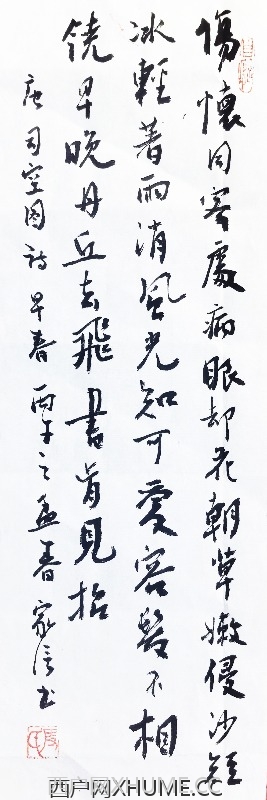 傷懷同客處病眼却花朝草嫩侵沙短
冰輕著雨消風光知可愛容髮不相
饒早晚丹丘去飛書肯見招
唐司空图詩早春丙午之孟春家信书
西户网XHUME.CC